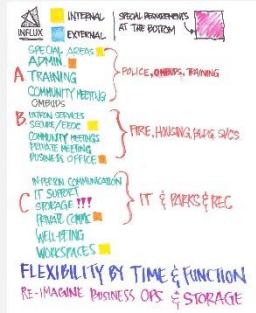 INFLUX
INTERNAL
EXTERNAL
SPECIAL REQUIREMENTS
AT THE BOTTOM
SPECIAL AREAS
ADMIN.
A TRAINING
COMMUNITY MEETING
OMBUDS
POLICE, OMBUDS, TRAINING
B PATRON SERVICES
SECURE/EROC
COMMUNITY MEETINGS
PRIVATE MEETING
BUSINESS OFFICE
FIRE, HOUSING, BLDG SVCS
IN-PERSON COMMUNICATION
C IT SUPPORT
STORAGE !!!
PRIVATE COMMS
WELL-BEING
WORKSPACES
IT & PARKS & REC
FLEXIBILITY BY TIME & FUNCTION
RE-IMAGINE BUSINESS OPS & STORAGE